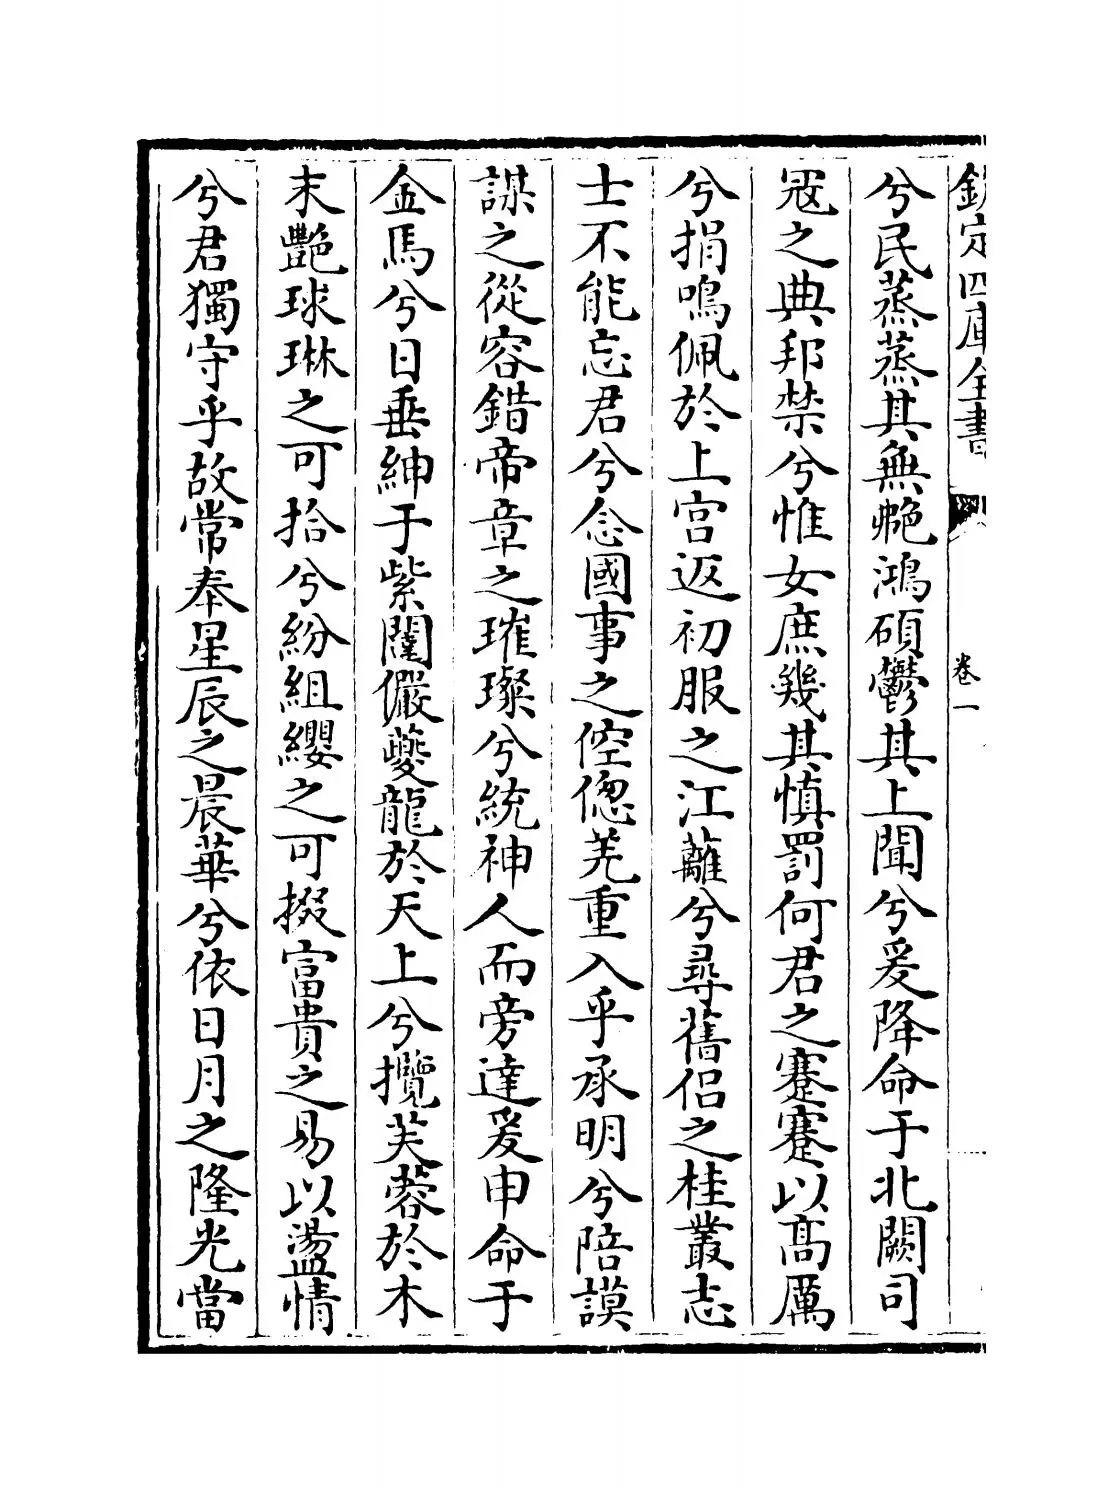 欽定四庫全書
卷一
兮民蒸蒸其無𧹞鴻碩鬱其上聞兮爰降命于北闕司
冦之典邦禁兮惟女庶幾其慎罰何君之蹇蹇以高厲
兮捐鳴佩於上宫返初服之江蘺兮尋舊侣之桂叢志
士不能忘君兮念國事之倥偬羌重入乎承明兮陪謨
謀之從容錯帝章之璀璨兮統神人而旁達爰申命于
金馬兮日垂紳于紫闥儼夔龍於天上兮攬芙蓉於木
末艶球琳之可拾兮紛組纓之可掇富貴之易以盪情
兮君獨守乎故常奉星辰之晨華兮依日月之隆光當